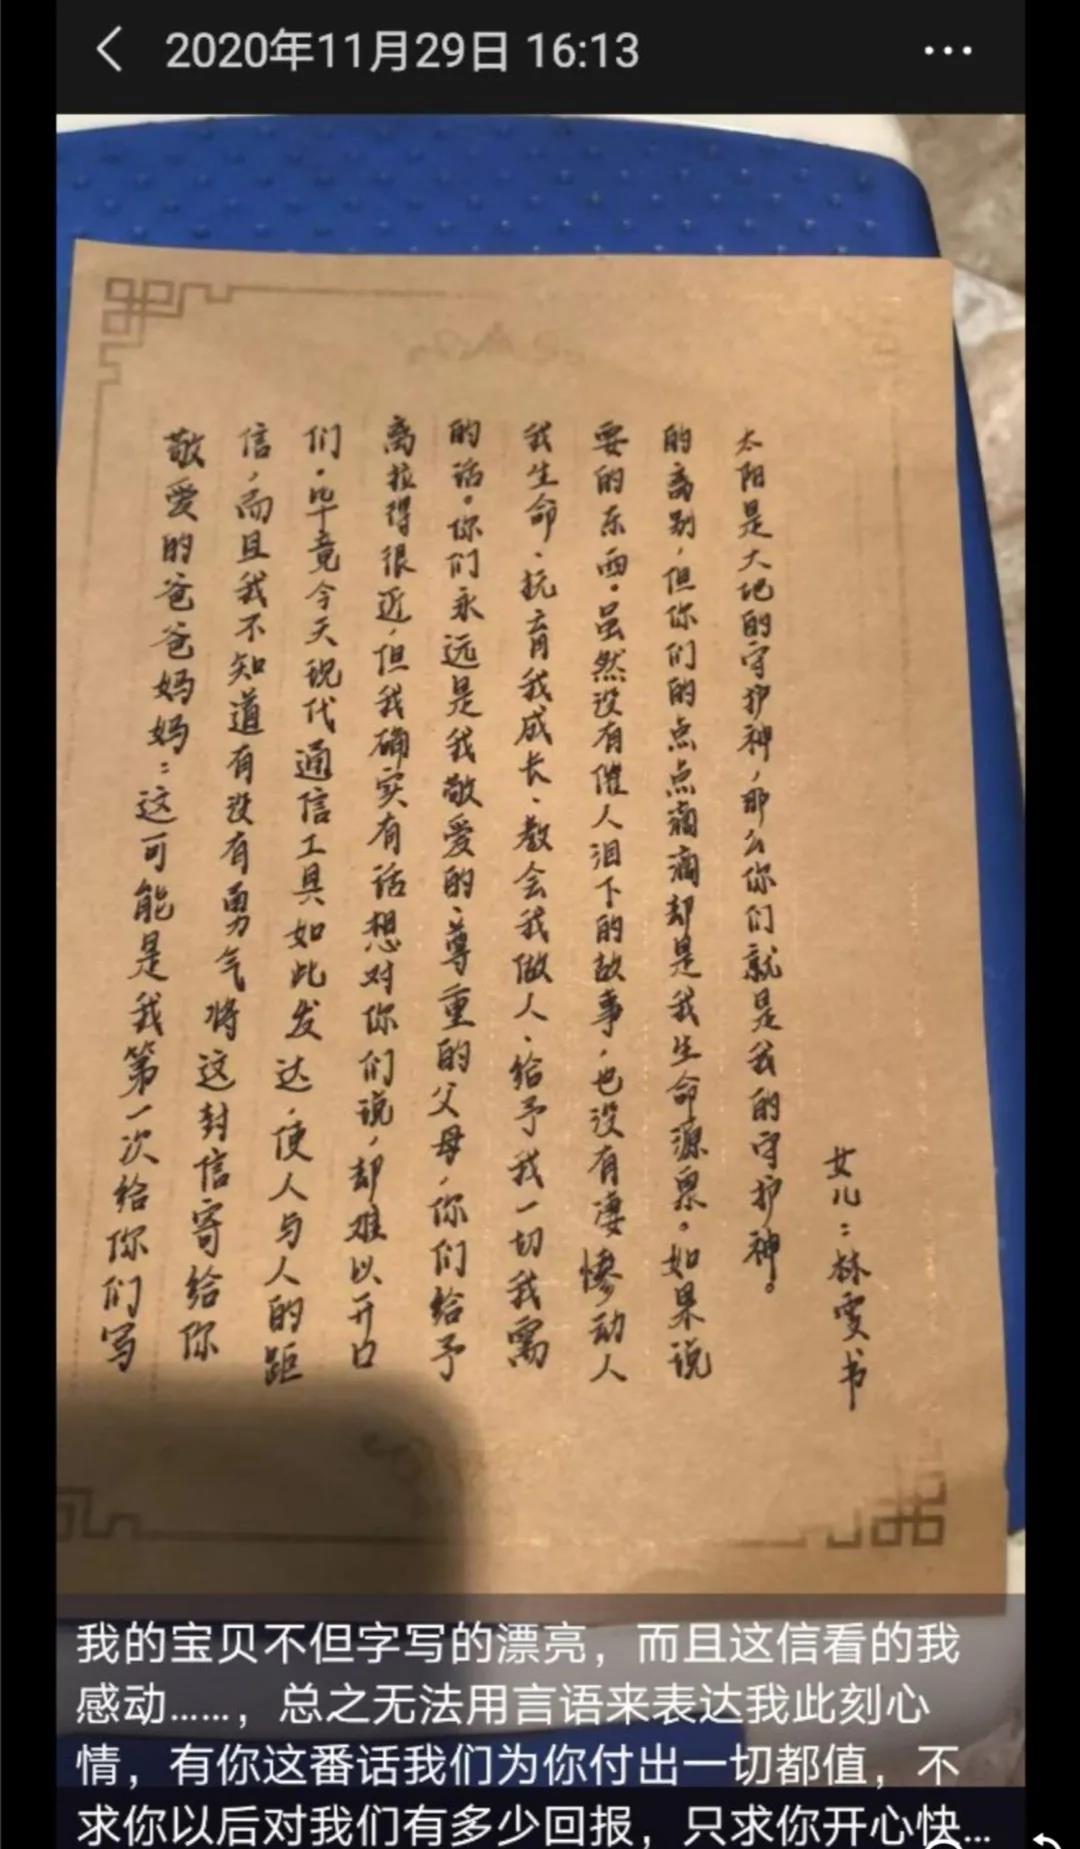 2020年11月29日 16:13
敬爱的爸爸妈妈：这可能是我第一次给你们写
信，而且我不知道有没有勇气将这封信寄给你
们。毕竟今天现代通信工具如此发达，使人与人的距
离拉得很近，但我确实有话想对你们说，却难以开口
的话。你们永远是我敬爱的、尊重的父母，你们给予
我生命、抚育我成长、教会我做人、给予我一切我需
要的东西。虽然没有催人泪下的故事，也没有凄惨动人
的离别，但你们的点点滴滴却是我生命源泉。如果说
太阳是大地的守护神，那么你们就是我的守护神。
女儿：林雯书
我的宝贝不但字写的漂亮，而且这信看的我
感动……，总之无法用言语来表达我此刻心
情，有你这番话我们为你付出一切都值，不
求你以后对我们有多少回报，只求你开心快...